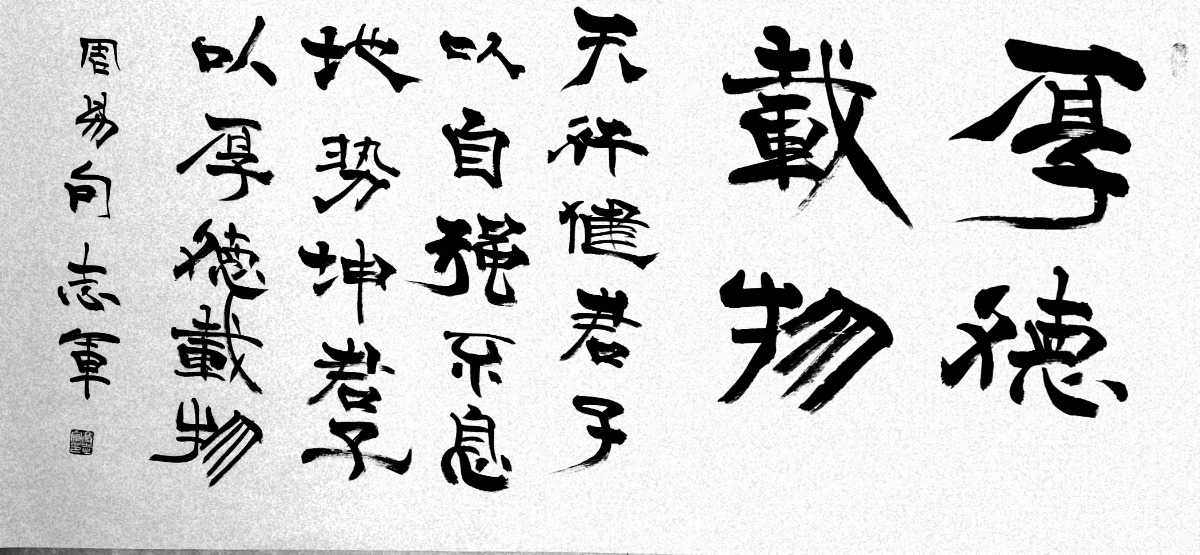 厚德
載物
天行健君子
以自强不息
地势坤君子
以厚德載物
周易句志軍